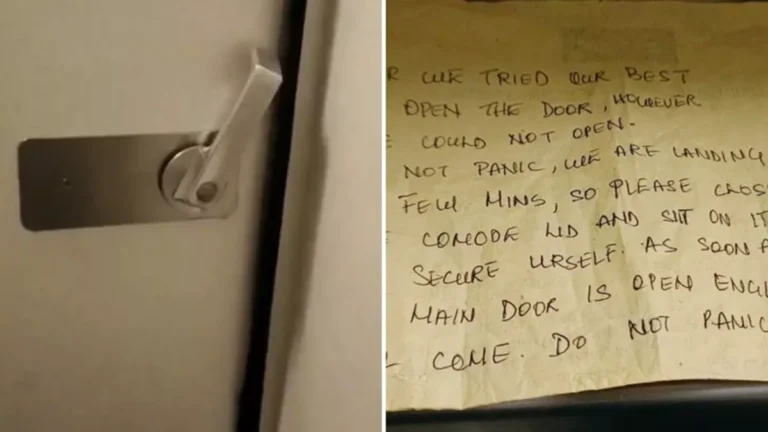 R WE TRIED OUR BEST
OPEN THE DOOR, HOWEVER
COULD NOT OPEN.
NOT PANIC, WE ARE LANDING
FEW MINS, SO PLEASE CLOS
COMODE LID AND SIT ON IT
SECURE URSELF. AS SOON A
MAIN DOOR IS OPEN ENGI
COME. DO NOT PANIC